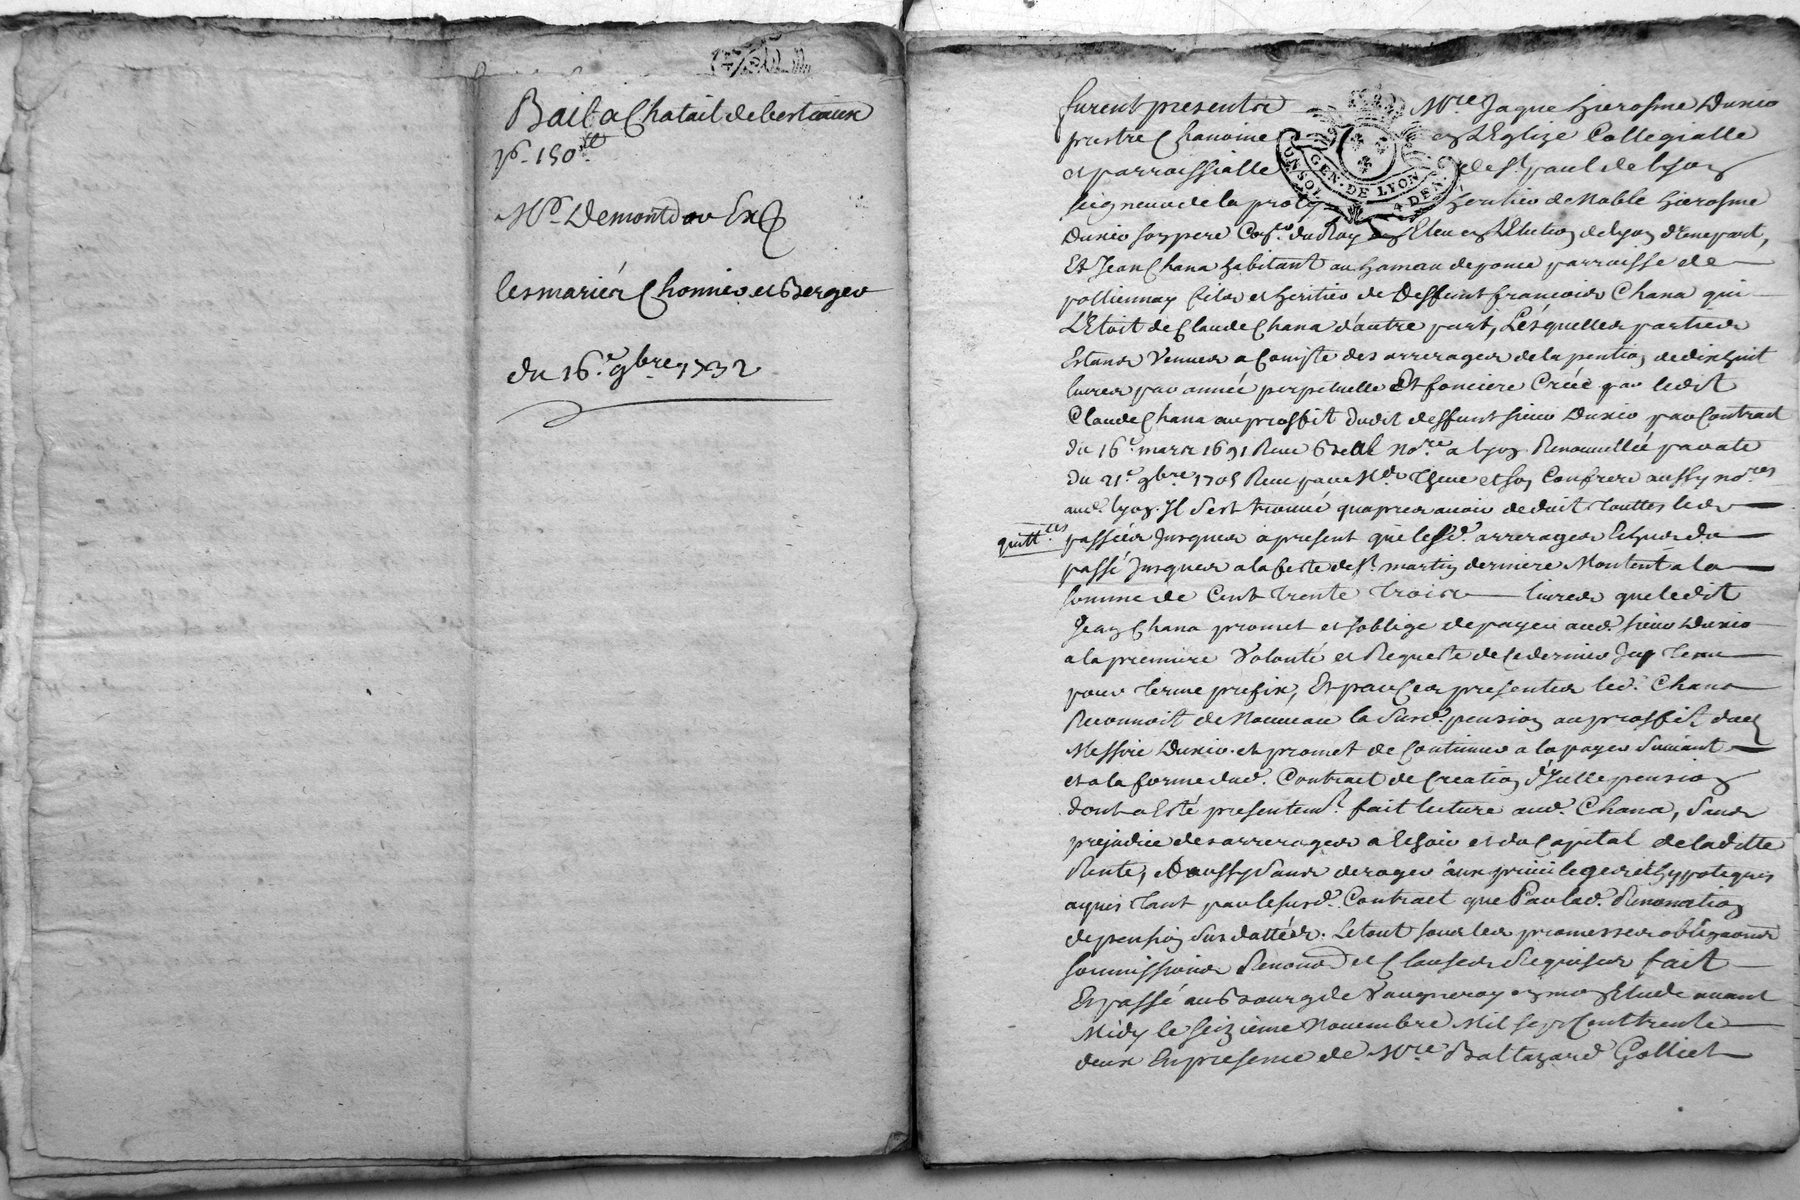 Bail a Chatail de bestiaux
pr. 150 ll
Mr. Demontdor Exr
les mariés Chonnier et Berger
du 16.e 9bre 1732
furent presents Mre Jaque hierosme Duxio
prestre Chanoine en L'Eglize Collegialle
et parroissialle de St. paul de Lyon
GEN. DE LYON
4 DEN.
seigneur de la heritier de Noble hierosme
Duxio son pere Coner. du Roy Eleu en L'Election de Lyon d'une part,
Et Jean Chana habitant au hameau de ponce parroisse de
polliennay filz et heritier de Deffunt francois Chana qui
L'Etoit de Claude Chana d'autre part, Lesquelles parties
Estans Venues a Compte des arrerages de la pention de dix huit
livres par année perpetuelle Et fonciere Créée par ledit
Claude Chana au proffit dudit deffunt sieur Duxio par Contract
du 16.e mars 1691 Receu Nore. a Lyon Renouvellée par acte
du 21.e 9bre 1705 Receu par et son Confrere aussy nores
aud. Lyon. Il s'est trouvé qu'apres avoir deduit touttes les
quittces passées Jusques a present que lesd. arrerages Echus du
passé Jusques a la feste de St. martin derniere Montent a la
somme de Cent trente trois livres que ledit
Jean Chana promet et s'oblige de payer aud. sieur Duxio
a la premiere Volonté et Requeste de Ce dernier
pour terme prefix, Et par Ces presentes led. Chana
Reconnoit de Nouveau la susd. pension au proffit dud
Messire Duxio. et promet de Continuer a la payer suivant
et a la forme dud. Contract de Creation d'Jcelle pension
dont a Esté presentemt. fait lecture aud. Chana, sans
prejudice des arrerages a Eschoir et du Capital de laditte
Rente, et aussy sans deroger aux privileges et hypoteques
aquis tant par le susd. Contract que Par lad. Renovation
de pension sus dattés. Le tout sous les promesses obligaons
soummissions Renond et Clauses Requises fait
Et passé au Bourg de Vaugneray en mon Etude avant
Midy le seizieme Novembre Mil sept Cent trente
deux En presence de Mre Baltazard Golliet